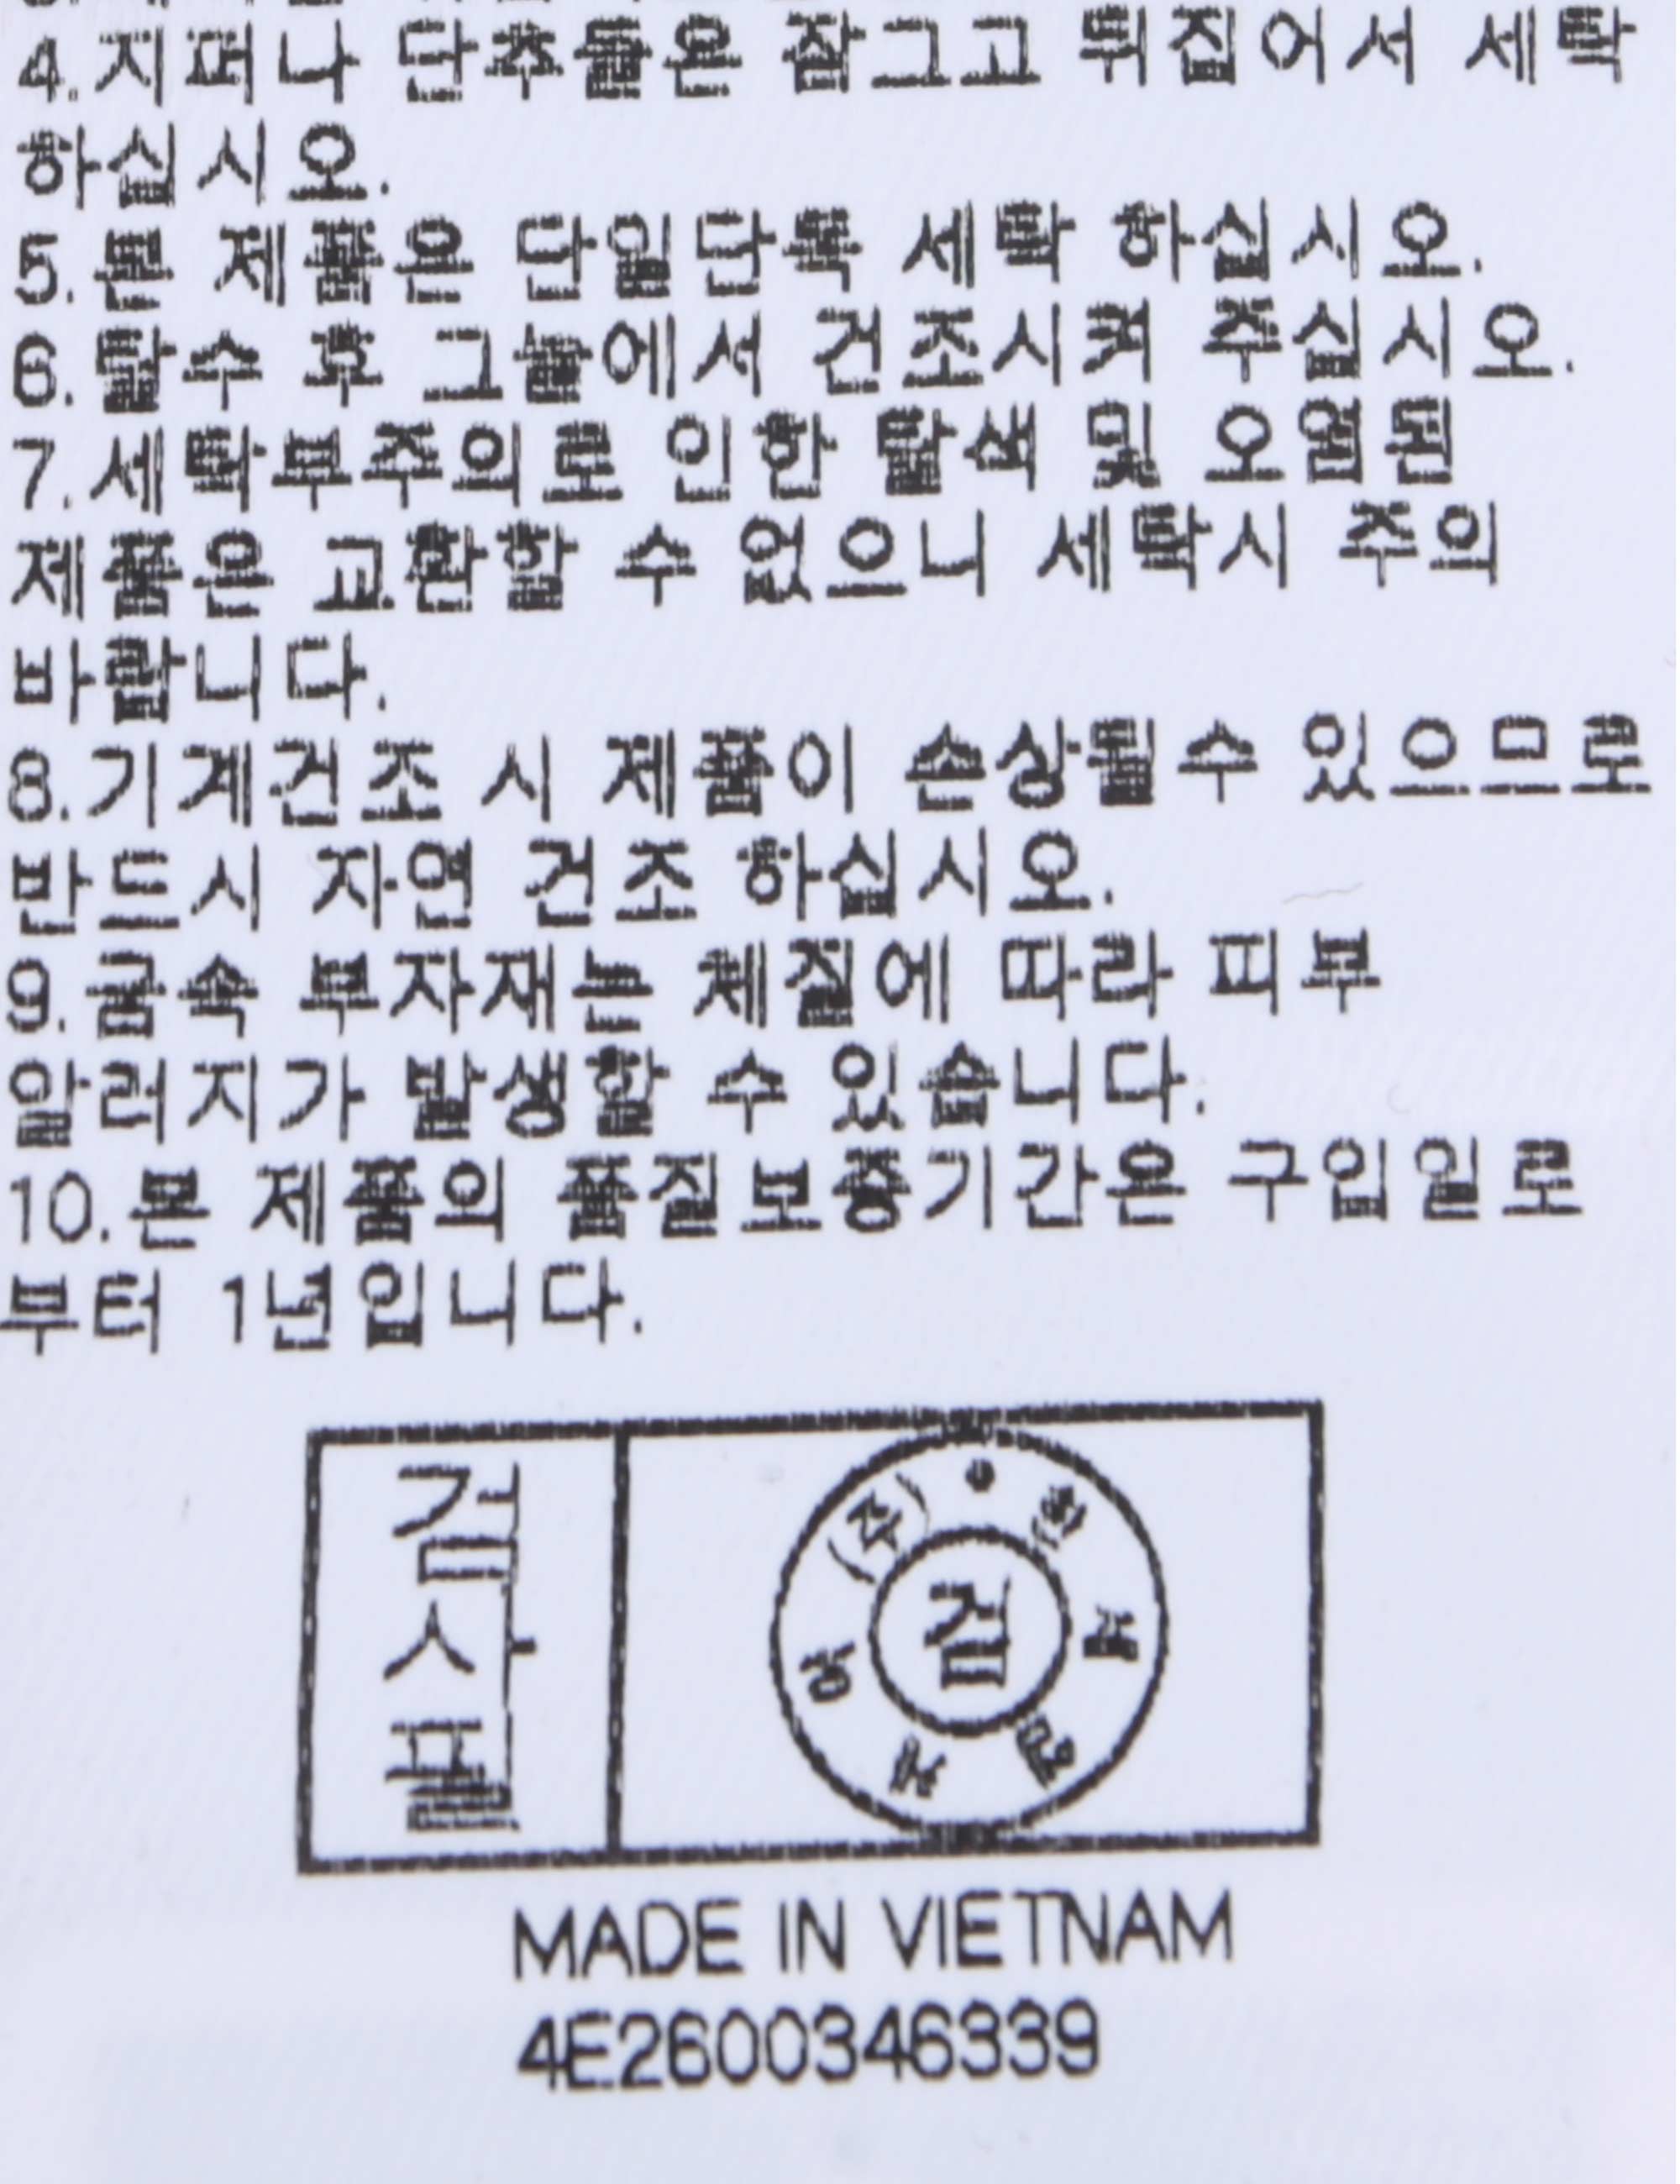 4.지퍼나 단추들은 잠그고 뒤집어서 세탁
하십시오.
5.본 제품은 단일단독 세탁 하십시오.
6.탈수 후 그늘에서 건조시켜 주십시오.
7.세탁부주의로 인한 탈색 및 오염된
제품은 교환할 수 없으니 세탁시 주의
바랍니다.
8.기계건조 시 제품이 손상될수 있으므로
반드시 자연 건조 하십시오.
9.금속 부자재는 체질에 따라 피부
알러지가 발생할 수 있습니다.
10.본 제품의 품질보증기간은 구입일로
부터 1년입니다.
검사필
(주)
검
MADE IN VIETNAM
4E2600346339